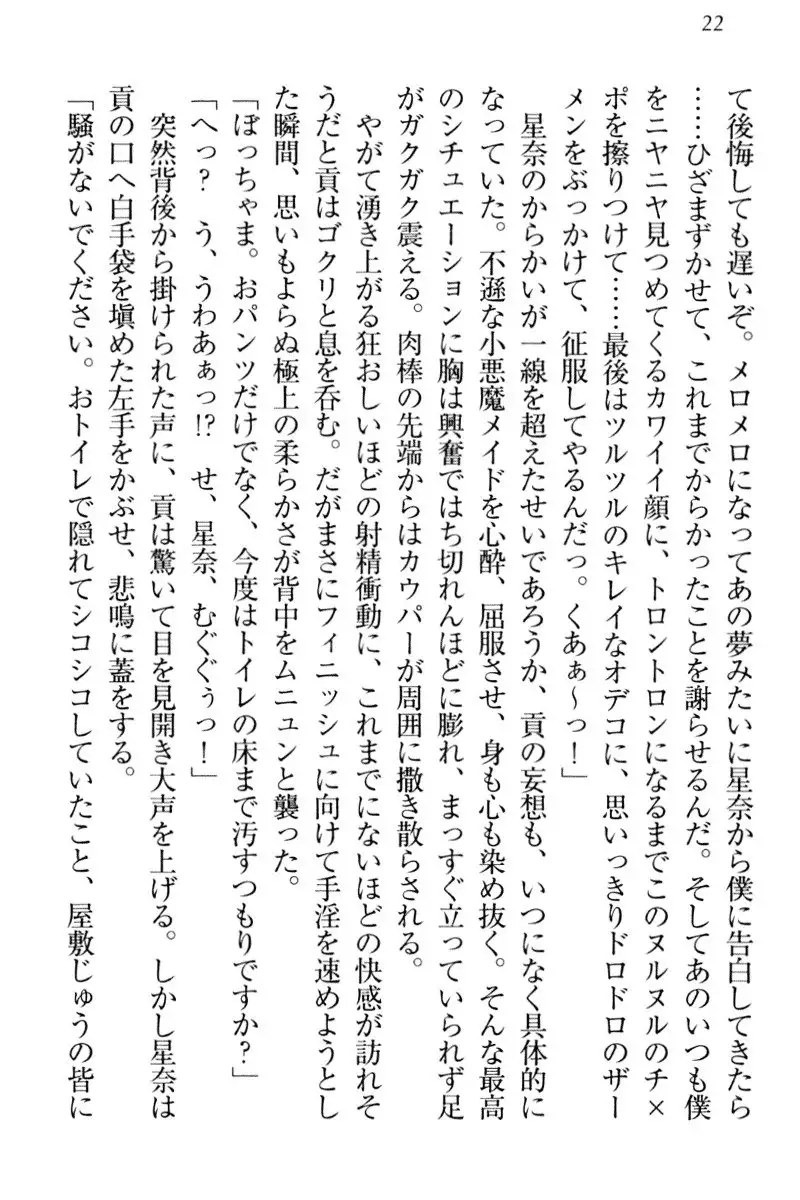 22
て後悔しても遅いぞ。メロメロになってあの夢みたいに星奈から僕に告白してきたら
……ひざまずかせて、これまでからかったことを謝らせるんだ。そしてあのいつも僕
をニヤニヤ見つめてくるカワイイ顔に、トロントロンになるまでこのヌルヌルのチ×
ポを擦りつけて……最後はツルツルのキレイなオデコに、思いっきりドロドロのザー
メンをぶっかけて、征服してやるんだっ。くあぁ～っ！」
　星奈のからかいが一線を超えたせいであろうか、貢の妄想も、いつになく具体的に
なっていた。不遜な小悪魔メイドを心酔、屈服させ、身も心も染め抜く。そんな最高
のシチュエーションに胸は興奮ではち切れんほどに膨れ、まっすぐ立っていられず足
がガクガク震える。肉棒の先端からはカウパーが周囲に撒き散らされる。
　やがて湧き上がる狂おしいほどの射精衝動に、これまでにないほどの快感が訪れそ
うだと貢はゴクリと息を呑む。だがまさにフィニッシュに向けて手淫を速めようとし
た瞬間、思いもよらぬ極上の柔らかさが背中をムニュンと襲った。
「ぼっちゃま。おパンツだけでなく、今度はトイレの床まで汚すつもりですか？」
「へっ？　う、うわあぁっ!?　せ、星奈、むぐぐぅっ！」
　突然背後から掛けられた声に、貢は驚いて目を見開き大声を上げる。しかし星奈は
貢の口へ白手袋を塡めた左手をかぶせ、悲鳴に蓋をする。
「騒がないでください。おトイレで隠れてシコシコしていたこと、屋敷じゅうの皆に